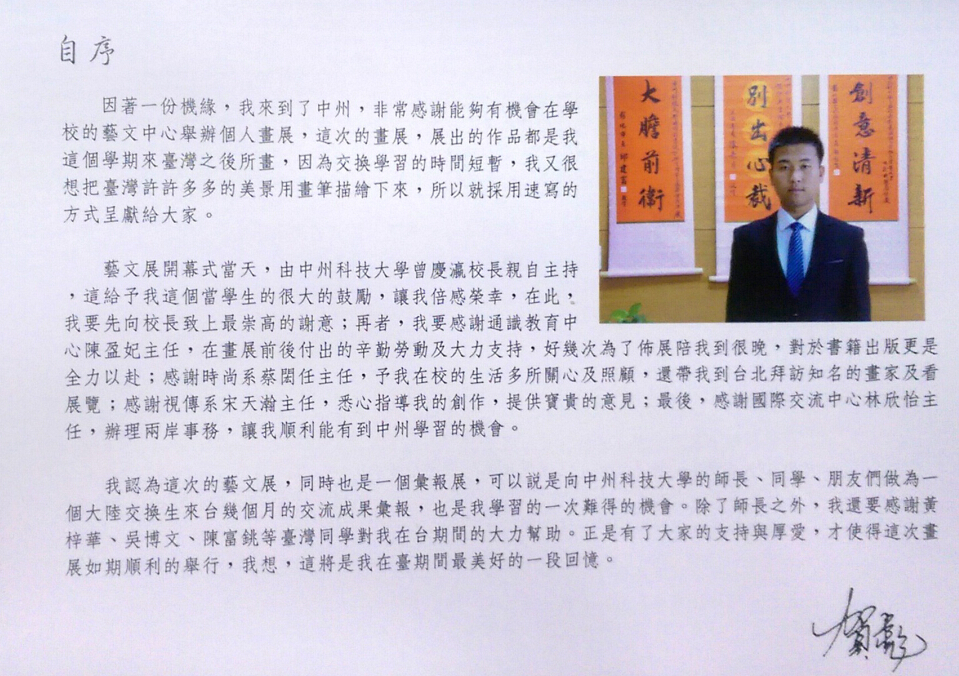 自序
因著一份機緣，我來到了中州，非常感謝能夠有機會在學
校的藝文中心舉辦個人畫展，這次的畫展，展出的作品都是我
這個學期來臺灣之後所畫，因為交換學習的時間短暫，我又很
想把臺灣許許多多的美景用畫筆描繪下來，所以就採用速寫的
方式呈獻給大家。
大膽前衛
別出心裁
創意清新
藝文展開幕式當天，由中州科技大學曾慶瀛校長親自主持
，這給予我這個當學生的很大的鼓勵，讓我倍感榮幸，在此，
我要先向校長致上最崇高的謝意；再者，我要感謝通識教育中
心陳盈妃主任，在畫展前後付出的辛勤勞動及大力支持，好幾次為了佈展陪我到很晚，對於書籍出版更是
全力以赴；感謝時尚系蔡閎任主任，予我在校的生活多所關心及照顧，還帶我到台北拜訪知名的畫家及看
展覽；感謝視傳系宋天瀚主任，悉心指導我的創作，提供寶貴的意見；最後，感謝國際交流中心林欣怡主
任，辦理兩岸事務，讓我順利能有到中州學習的機會。
我認為這次的藝文展，同時也是一個彙報展，可以說是向中州科技大學的師長、同學、朋友們做為一
個大陸交換生來台幾個月的交流成果彙報，也是我學習的一次難得的機會。除了師長之外，我還要感謝黃
梓華、吳博文、陳富銚等臺灣同學對我在台期間的大力幫助。正是有了大家的支持與厚愛，才使得這次畫
展如期順利的舉行，我想，這將是我在臺期間最美好的一段回憶。